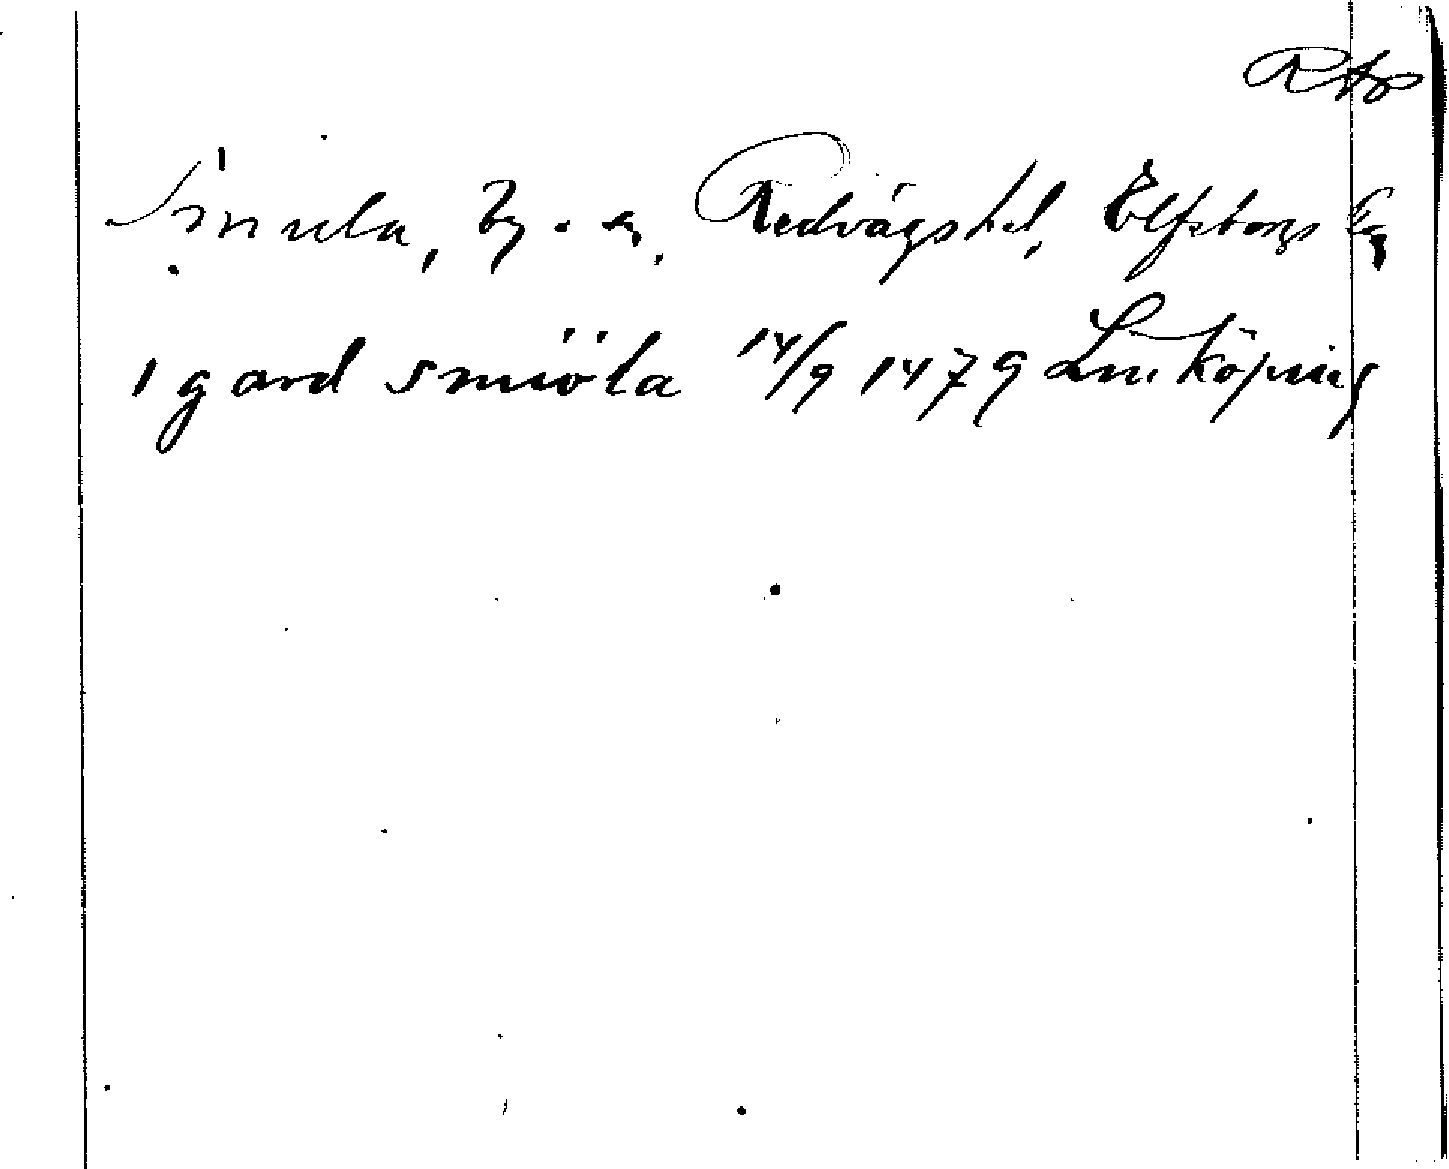 Rtp
Smula, By. o. sn, Redvägs hd, Elfsborgs L.
1 gard smiöla 14/9 1479 Linköping